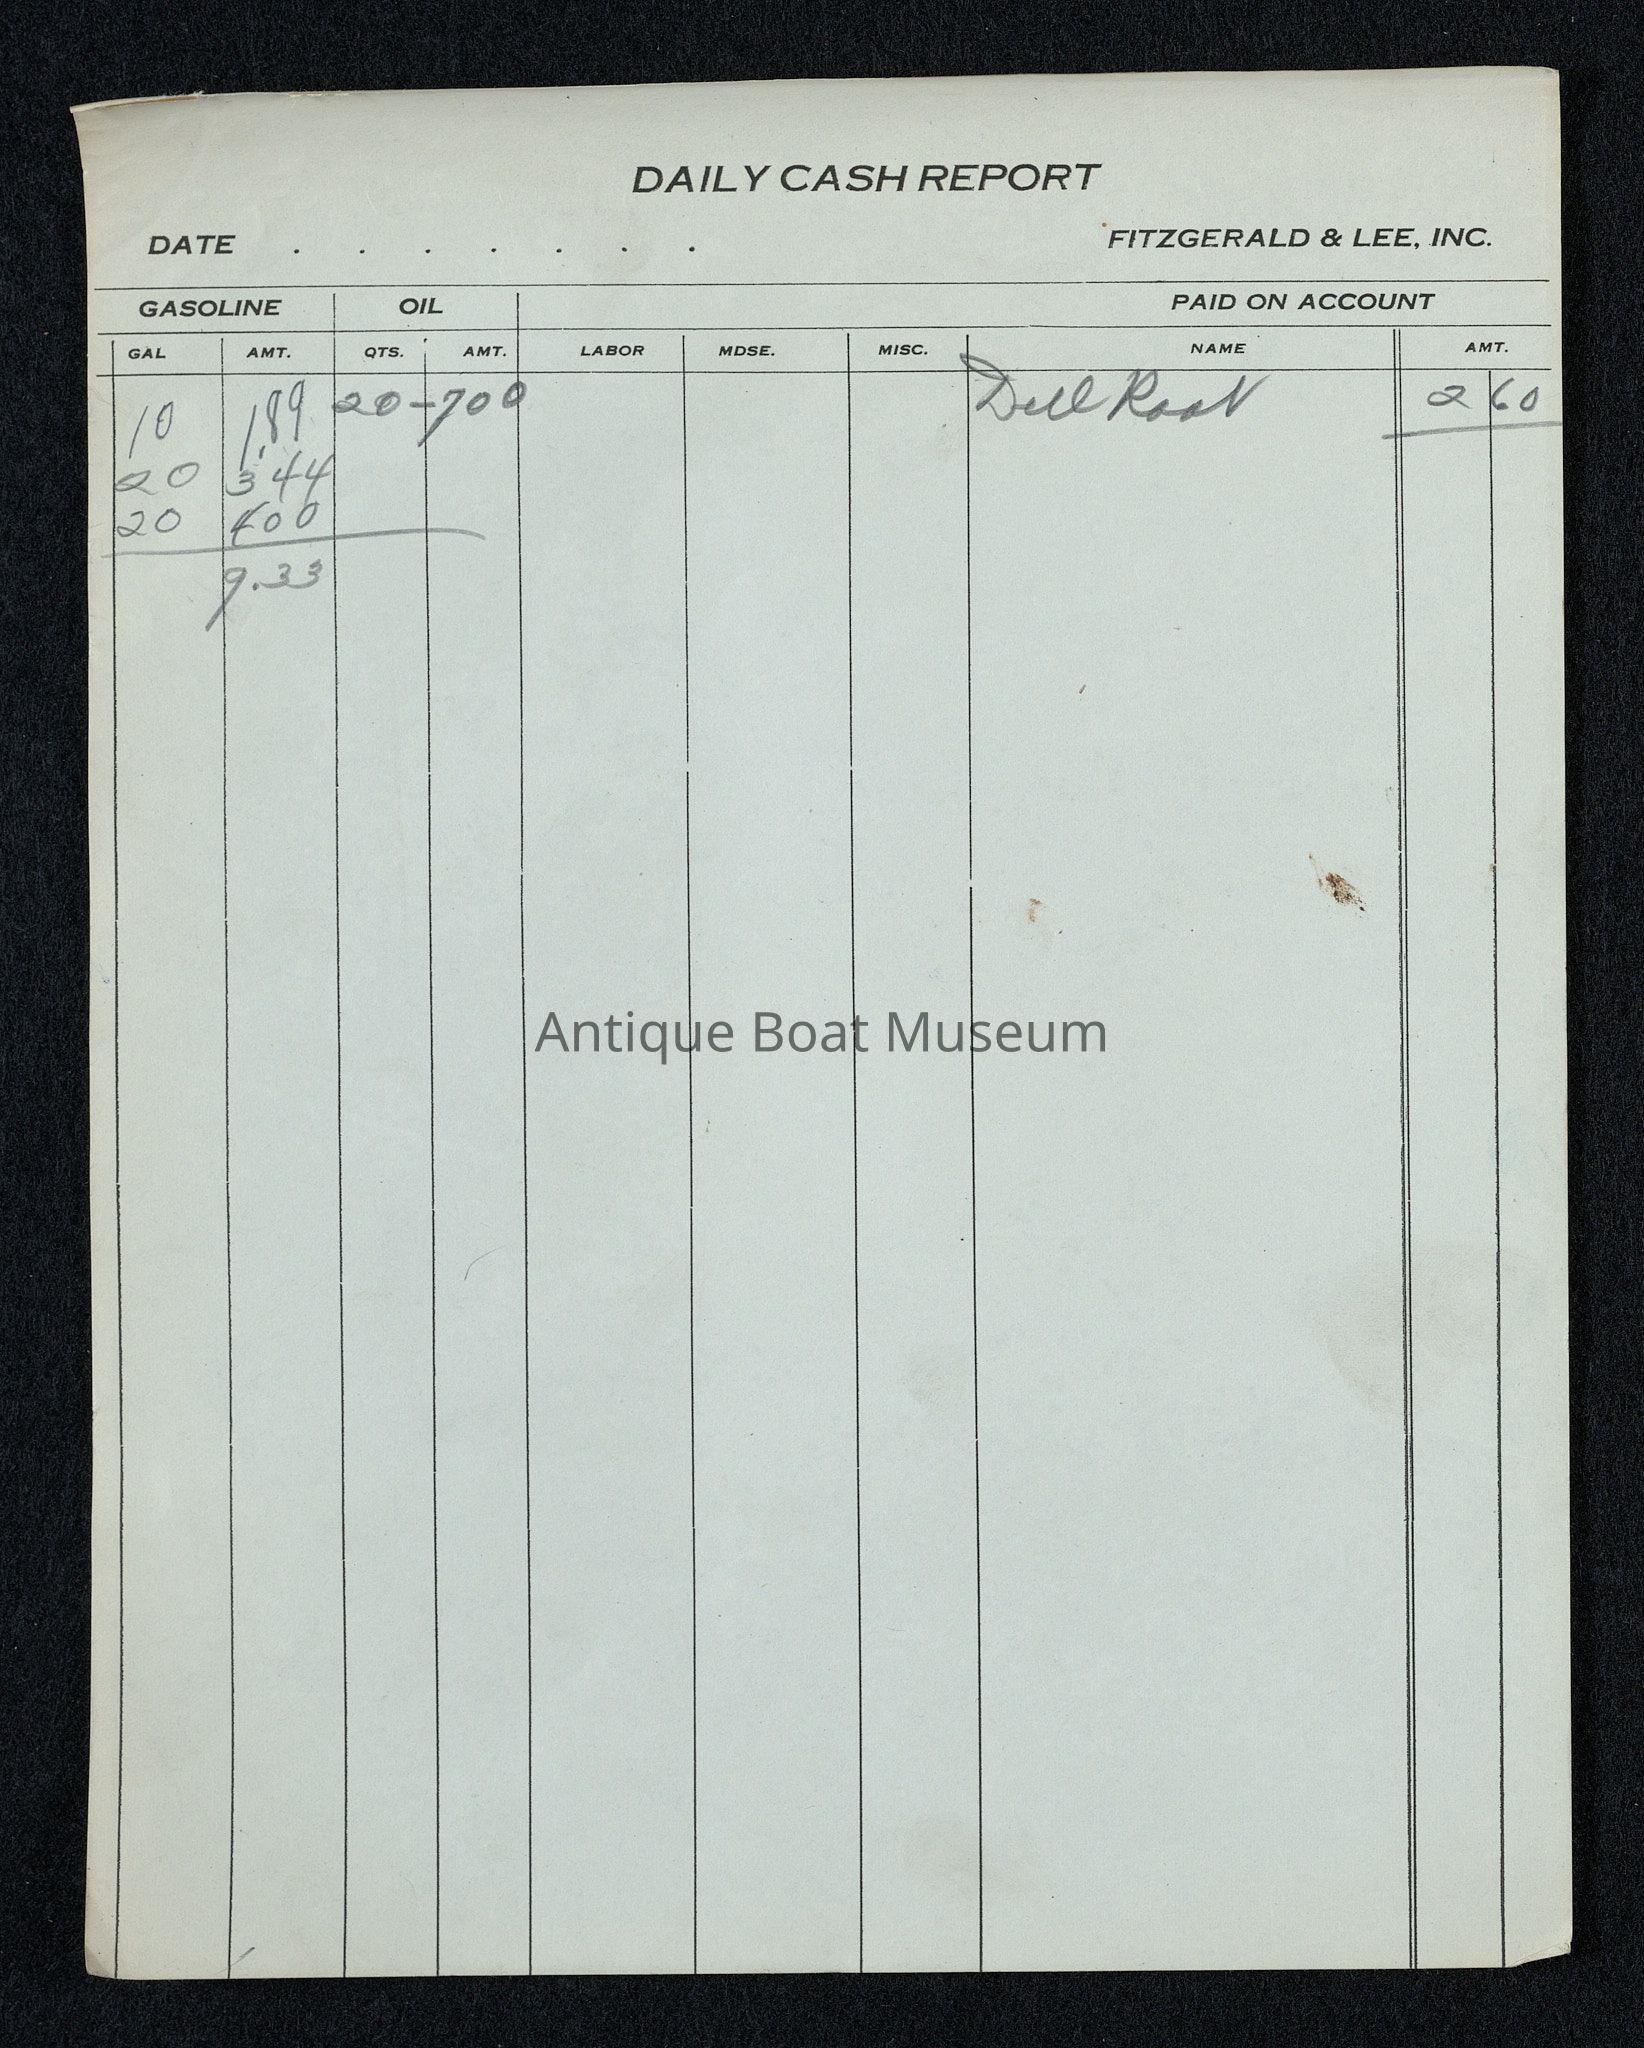 DAILY CASH REPORT
DATE . . . . . . . FITZGERALD & LEE, INC.
GASOLINE OIL PAID ON ACCOUNT
GAL AMT. QTS. AMT. LABOR MDSE. MISC. NAME AMT.
10 1,89 20-700 Dell Root 2 60
20 344
20 400
9.33
Antique Boat Museum